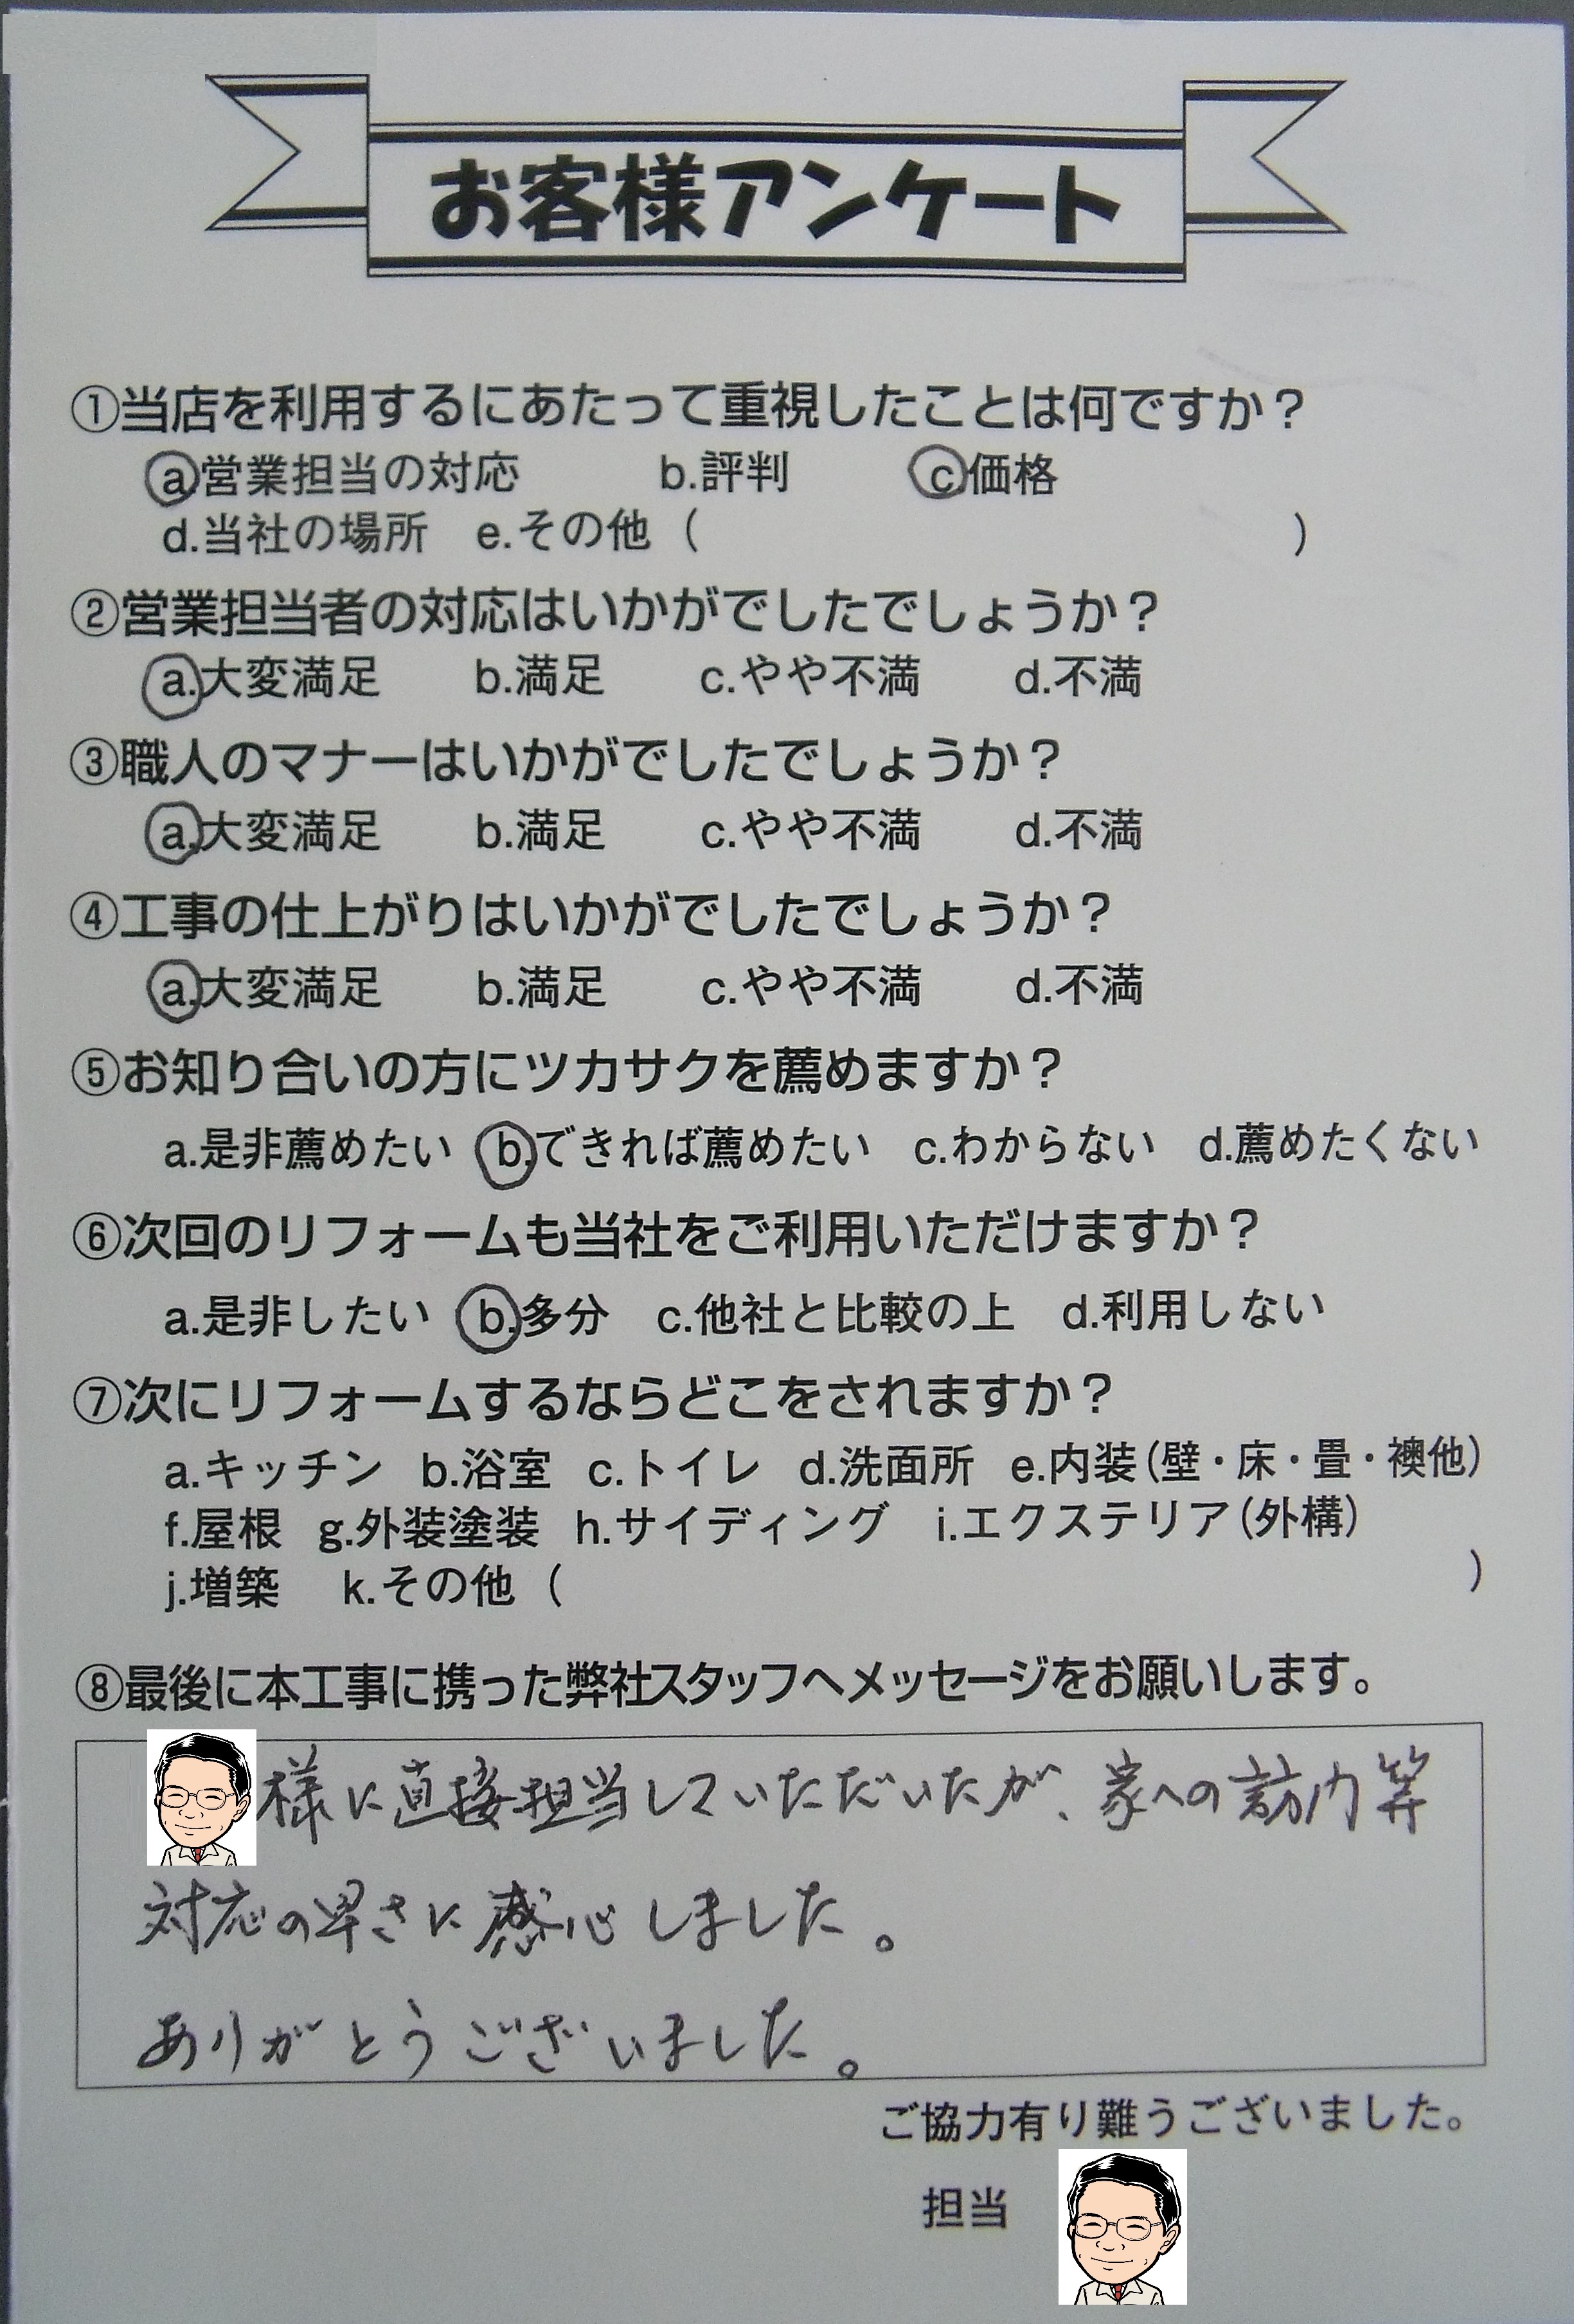 お客様アンケート
①当店を利用するにあたって重視したことは何ですか？
a.営業担当の対応 b.評判 c.価格
d.当社の場所 e.その他（ ）
②営業担当者の対応はいかがでしたでしょうか？
a.大変満足 b.満足 c.やや不満 d.不満
③職人のマナーはいかがでしたでしょうか？
a.大変満足 b.満足 c.やや不満 d.不満
④工事の仕上がりはいかがでしたでしょうか？
a.大変満足 b.満足 c.やや不満 d.不満
⑤お知り合いの方にツカサクを薦めますか？
a.是非薦めたい b.できれば薦めたい c.わからない d.薦めたくない
⑥次回のリフォームも当社をご利用いただけますか？
a.是非したい b.多分 c.他社と比較の上 d.利用しない
⑦次にリフォームするならどこをされますか？
a.キッチン b.浴室 c.トイレ d.洗面所 e.内装（壁・床・畳・襖他）
f.屋根 g.外装塗装 h.サイディング i.エクステリア（外構）
j.増築 k.その他（ ）
⑧最後に本工事に携った弊社スタッフへメッセージをお願いします。
様に直接担当していただいたが、家への訪内等
対応の早さに感心しました。
ありがとうございました。
ご協力有り難うございました。
担当